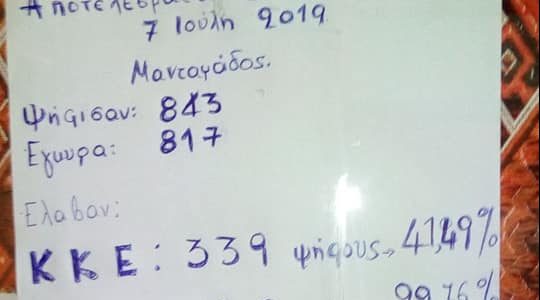 Αποτελέσμα
7 Ιούλη 2019
Μανταμάδος.
Ψήφισαν: 843
Έγκυρα: 817
Ελαβαν:
ΚΚΕ: 339 ψήφους, 41,49%
99,76%